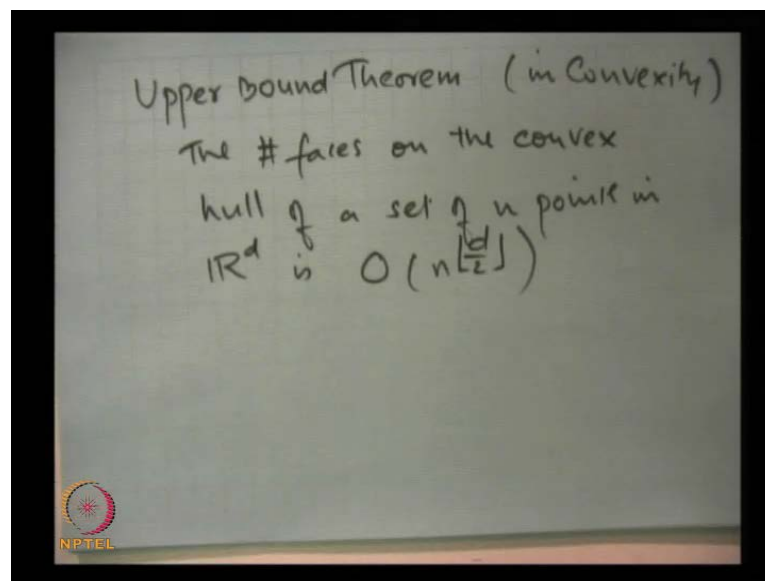 Upper Bound Theorem (in Convexity)
The # faces on the convex
hull of a set of n points in
ℝᵈ is O(n^⌊d/2⌋)
NPTEL